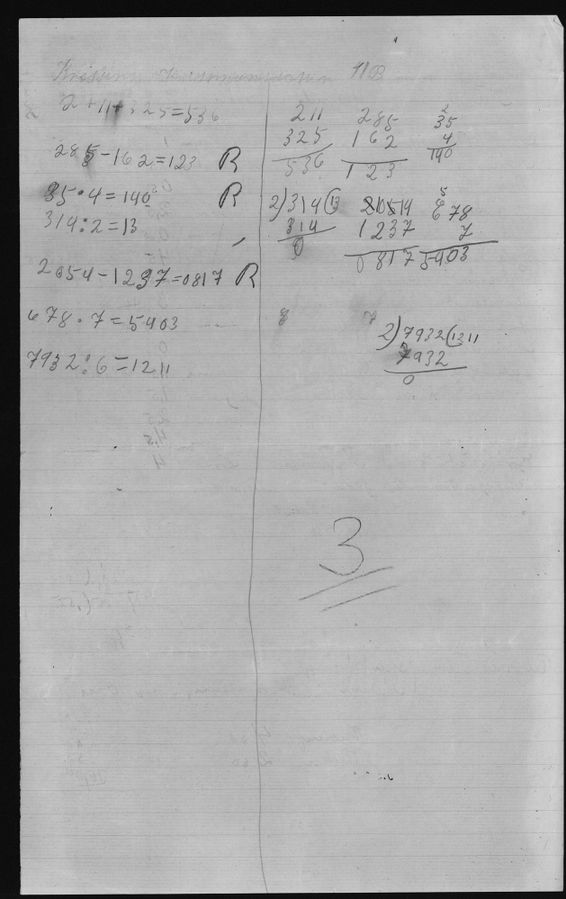 11B
2+11+325=536
285-162=123 R
35·4=140 R
314:2=13
2054-1237=0817 R
678·7=5403
7932:6=1211
211
325
536
285
162
123
2
35
4
140
2)314(13
314
0
20514
1237
0817
5
678
7
5403
8 7
2)7932(1211
7932
0
3